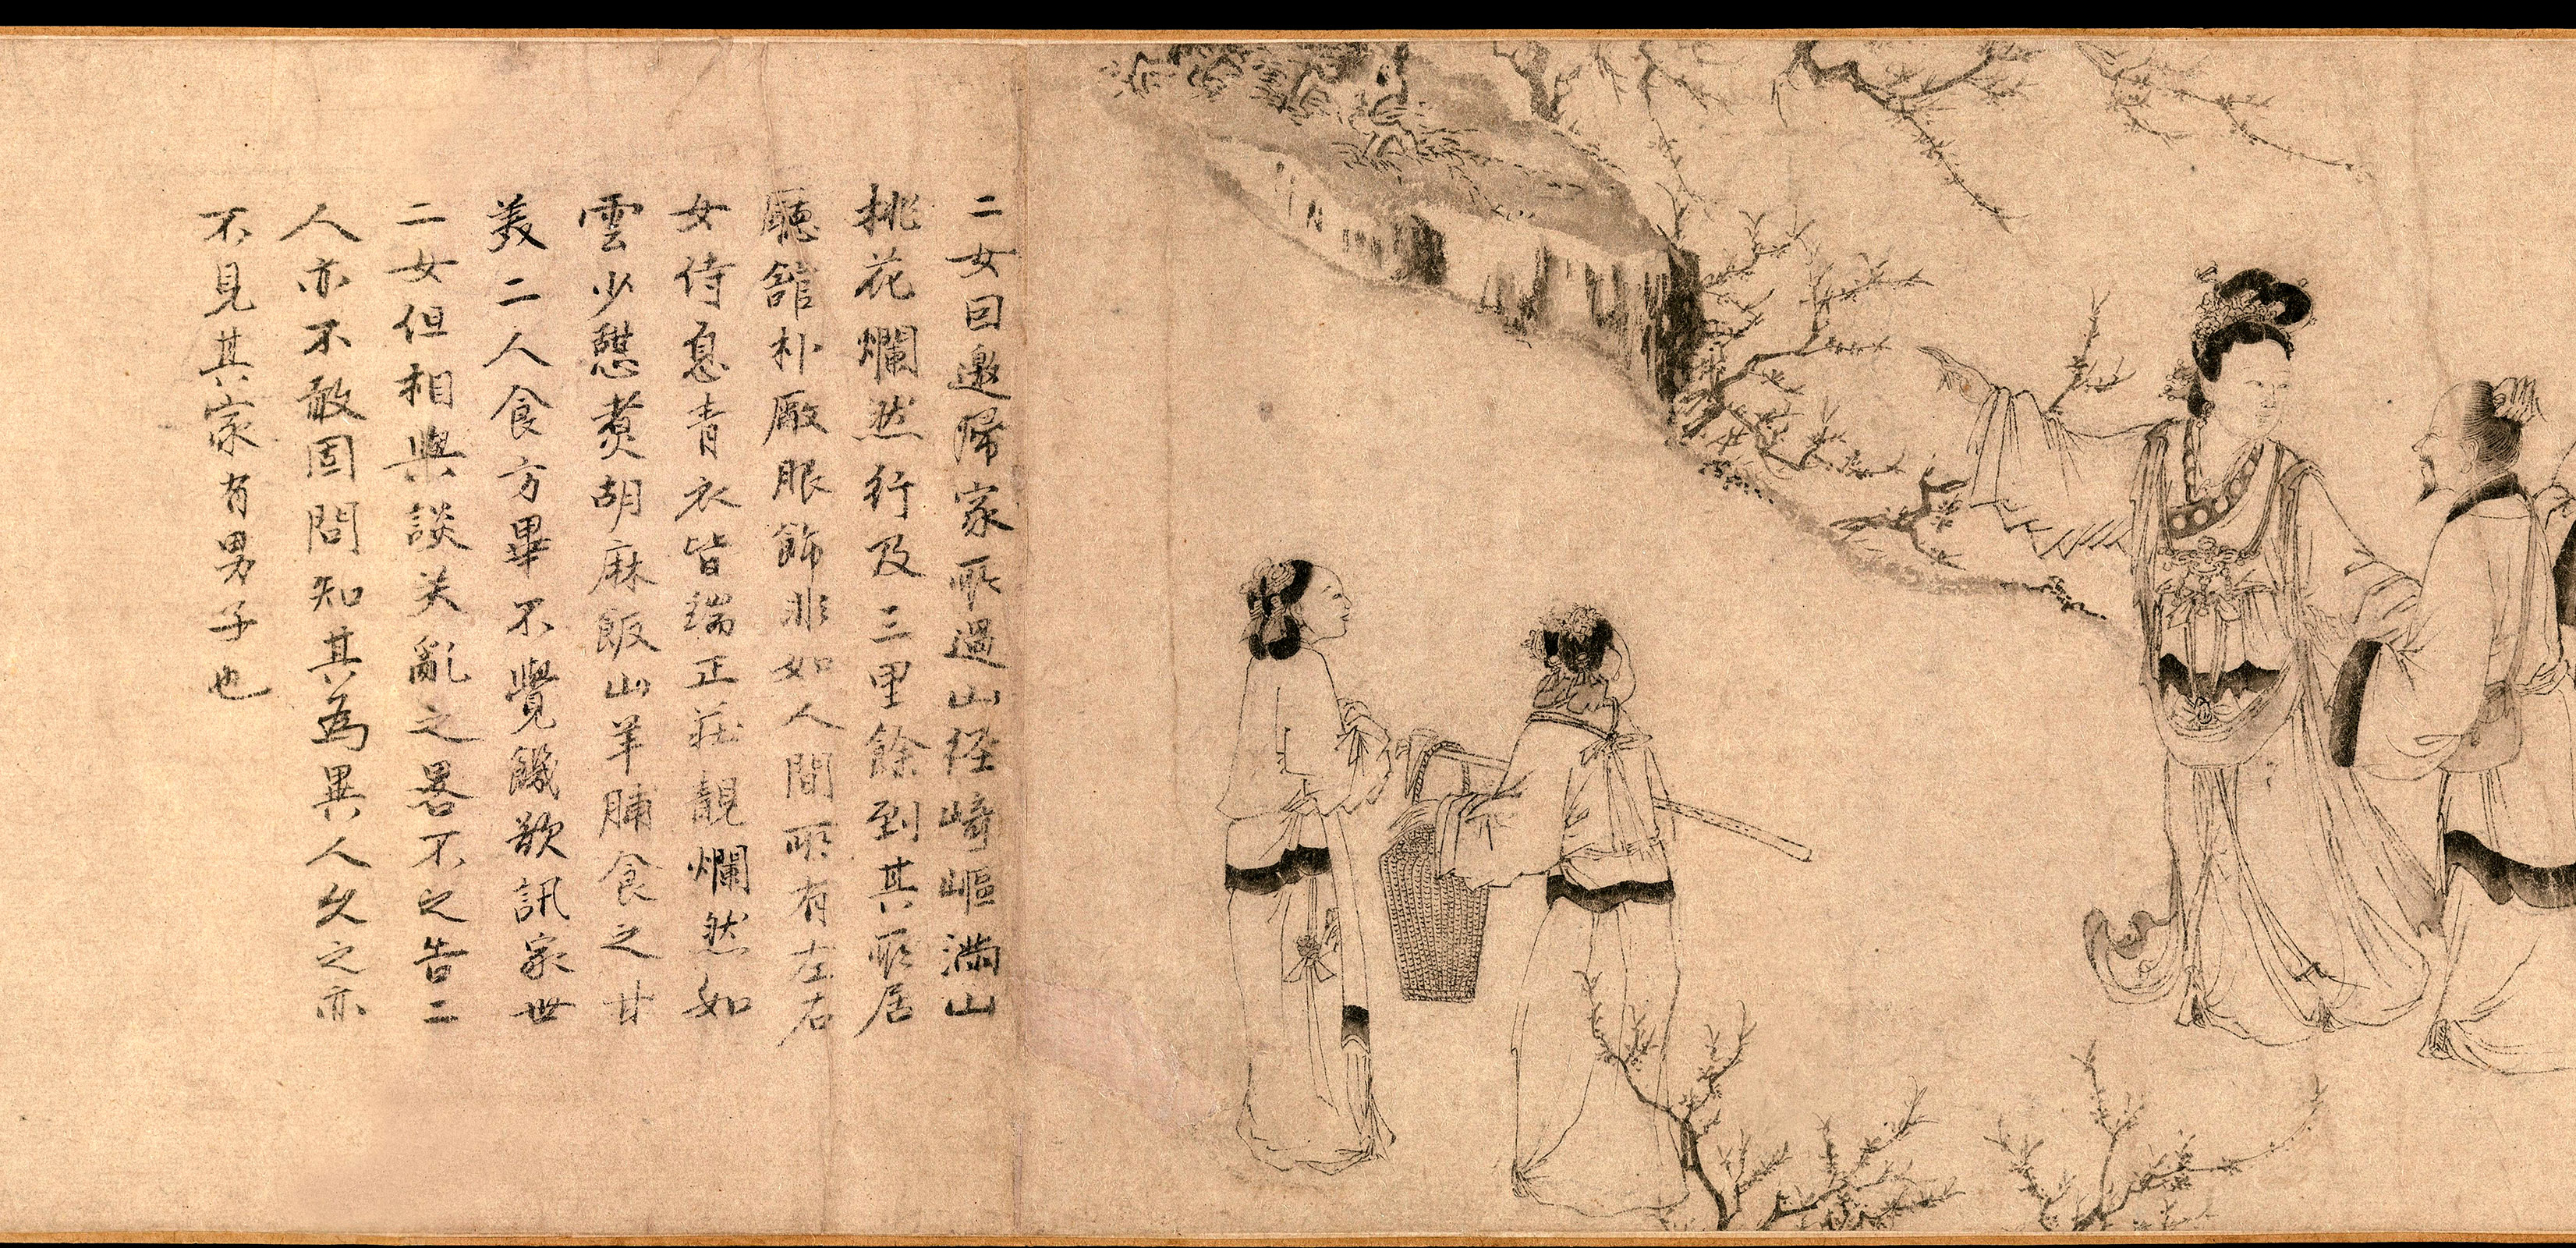 二女回邀歸家所過山徑崎嶇滿山
桃花爛然行及三里餘到其所居
廳舘朴厰服飾非如人間所有左右
女侍息青衣皆端正莊靚爛然如
雲少憇煑胡麻飯山羊脯食之甘
美二人食方畢不覺饑欲訊家世
二女但相與談笑亂之畧不之告二
人亦不敢固問知其為異人久之亦
不見其家有男子也